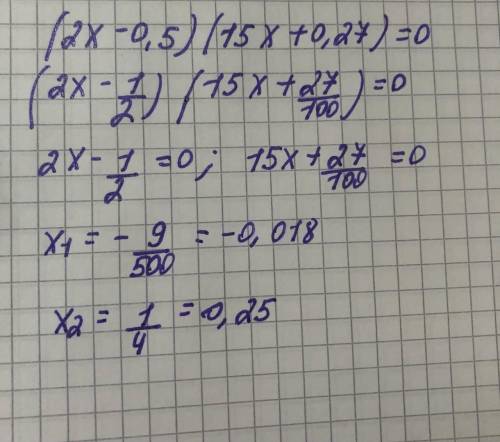 (2x - 0,5)(15x + 0,27) = 0
(2x - 1/2)(15x + 27/100) = 0
2x - 1/2 = 0; 15x + 27/100 = 0
x1 = - 9/500 = -0,018
x2 = 1/4 = 0,25